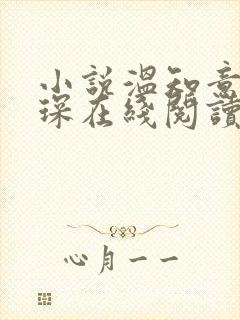 小説溫知意
琛在綫閱讀
心月一一